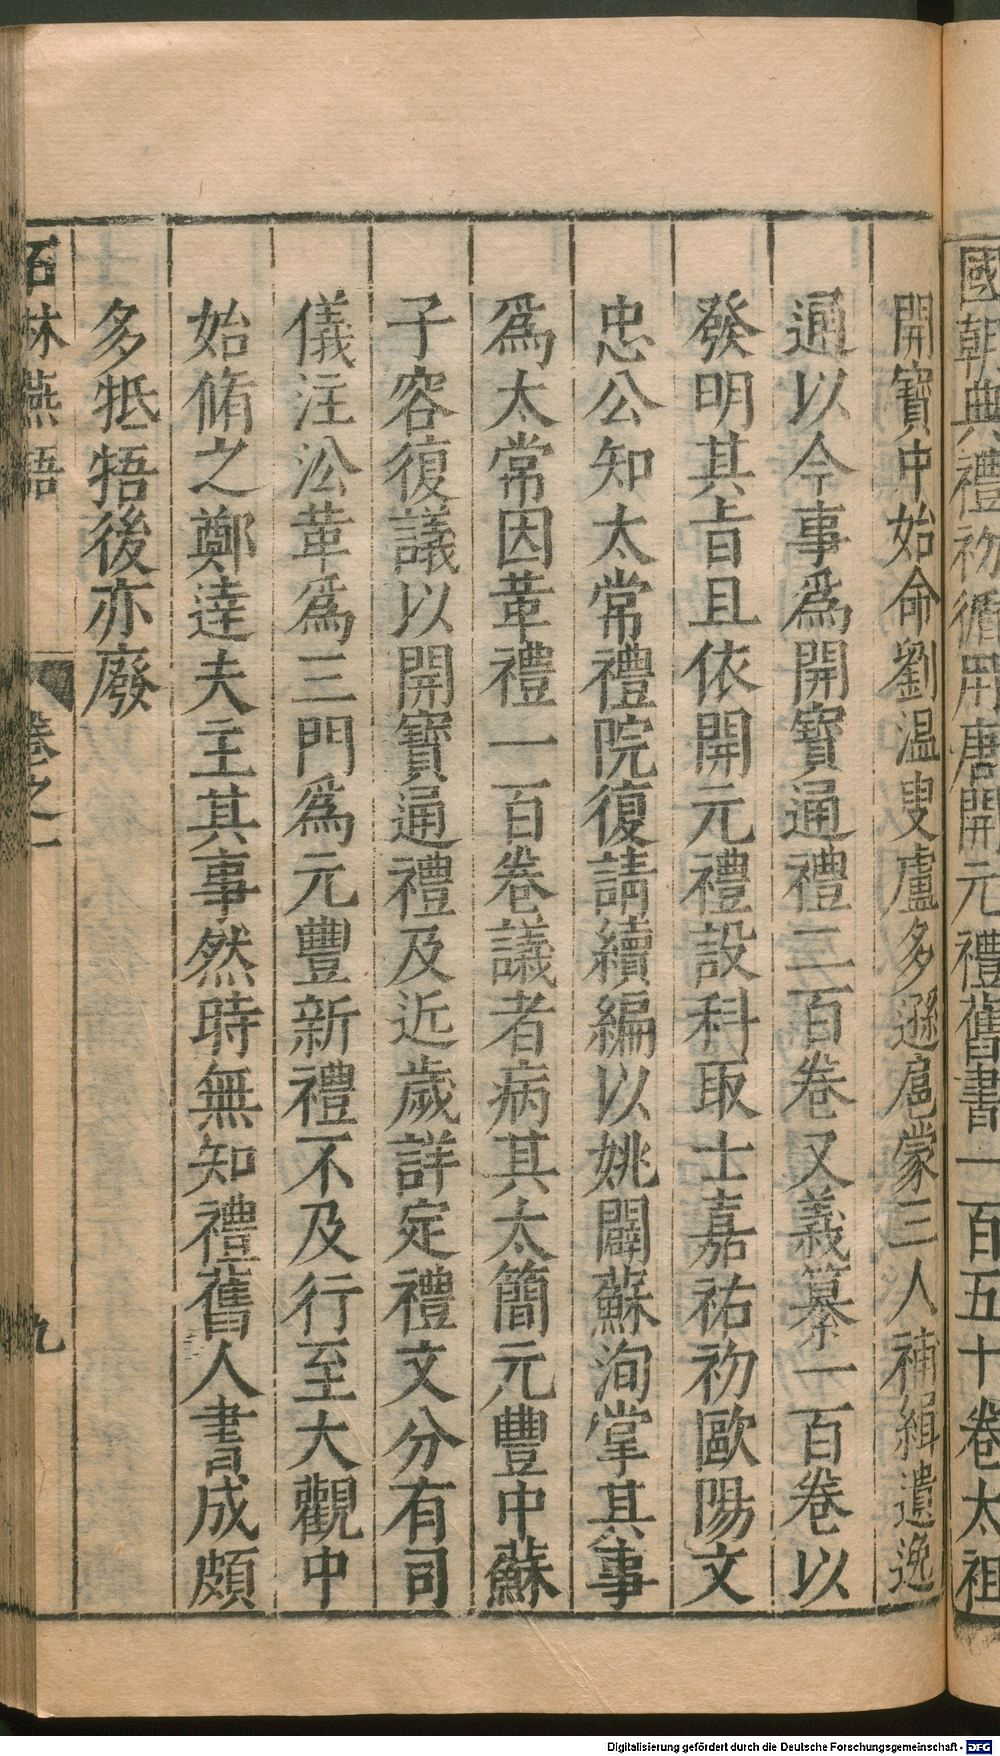 國朝典禮初循用唐開元禮舊書一百五十卷太祖
開寶中始命劉温叟盧多遜扈蒙三人補緝遺逸
通以今事爲開寶通禮二百卷又義纂一百卷以
發明其旨且依開元禮設科取士嘉祐初歐陽文
忠公知太常禮院復請續編以姚闢蘇洵掌其事
爲太常因革禮一百卷議者病其太簡元豐中蘇
子容復議以開寶通禮及近歲詳定禮文分有司
儀注沿革爲三門爲元豐新禮不及行至大觀中
始脩之鄭達夫主其事然時無知禮舊人書成頗
多牴牾後亦廢
石林燕語 卷之一 九
Digitalisierung gefördert durch die Deutsche Forschungsgemeinschaft - DFG